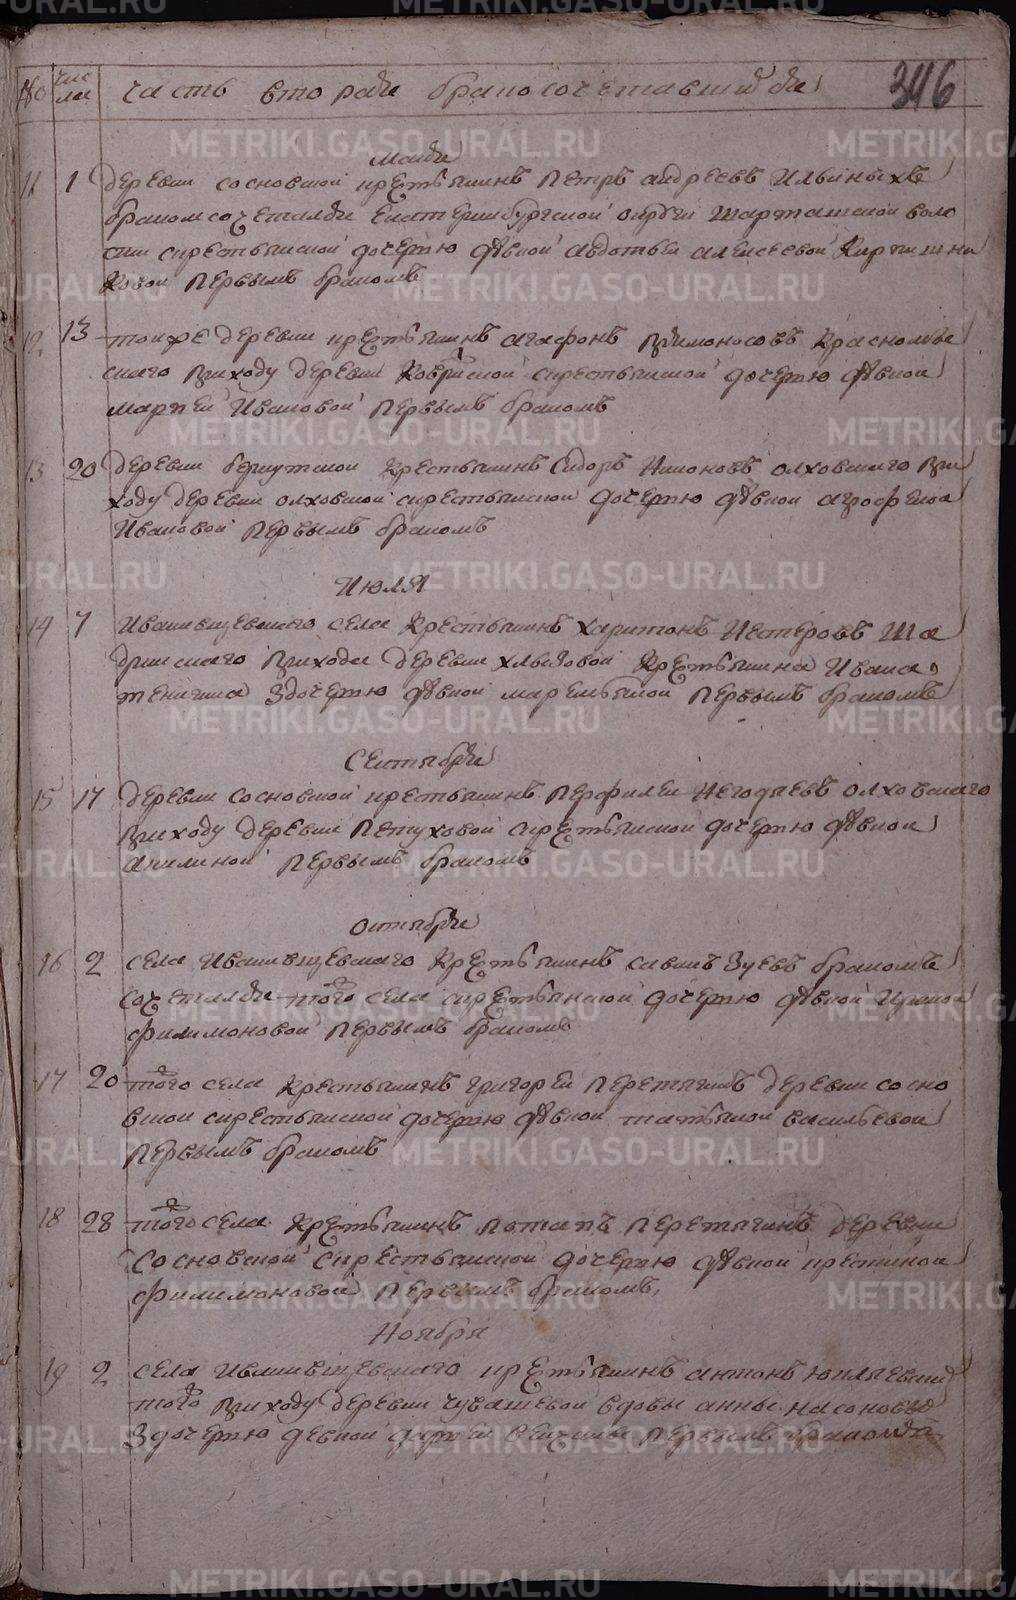 № чис
ла часть вторая бракосочетавшияся 346
маия
11 1 деревни сосновской крестьянинъ петръ андреевъ Ильиныхъ
бракомсочеталъся екатеринбургской округи шарташской воло
сти скрестьянской дочерью девкой авдотьи алексеевой Кирпищи
ковой первымъ бракомъ
12 13 тоиже деревни крестьянинъ агафонъ красномы
скаго приходу деревни скрестьянской дочерью девкой
марпеи Ивановой первымъ бракомъ
13 20 деревни крестьянинъ Сидоръ Никоновъ олховскаго при
ходу деревни олховской скрестьянской дочерью девкой
Ивановой первымъ бракомъ
Июля
14 7 Иванищевскаго села крестьянинъ харитонъ Нестеровъ Ша
дринскаго прихода деревни крестьянина Ивана
здочерью девкой маремьяной первымъ бракомъ
Сентября
15 17 деревни сосновской крестьянинъ перфилеи Негодяевъ олховскаго
приходу деревни петуховой скрестьянской дочерью девкой
акилиной первымъ бракомъ
октября
16 2 села Иванищевскаго крестьянинъ савинъ Зуевъ бракомъ
сочеталъся того села скрестьянской дочерью девкой
филимоновой первымъ бракомъ
17 20 того села крестьянинъ григореи перетягинъ деревни сосно
вской скрестьянской дочерью девкой татьяной васильевой
первымъ бракомъ
18 28 того села крестьянинъ потапъ перетягинъ деревни
сосновской скрестьянской дочерью девкой
филимоновой первымъ бракомъ
Ноября
19 2 села Иванищевскаго крестьянинъ антонъ
того приходу деревни чувашевой вдовы анны
здочерью девкой первымъ бракомъ
METRIKI.GASO-URAL.RU